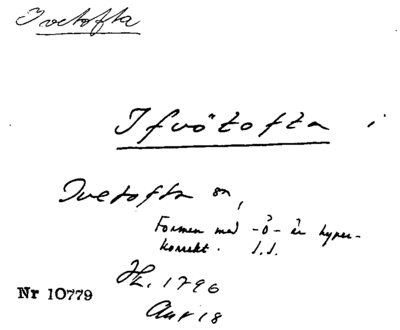 Ivetofta
Ifvötofta i
Ivetofta sn,
Formen med -ö- är hyper-
korrekt. I.I.
Hl. 1796
Nr 10779